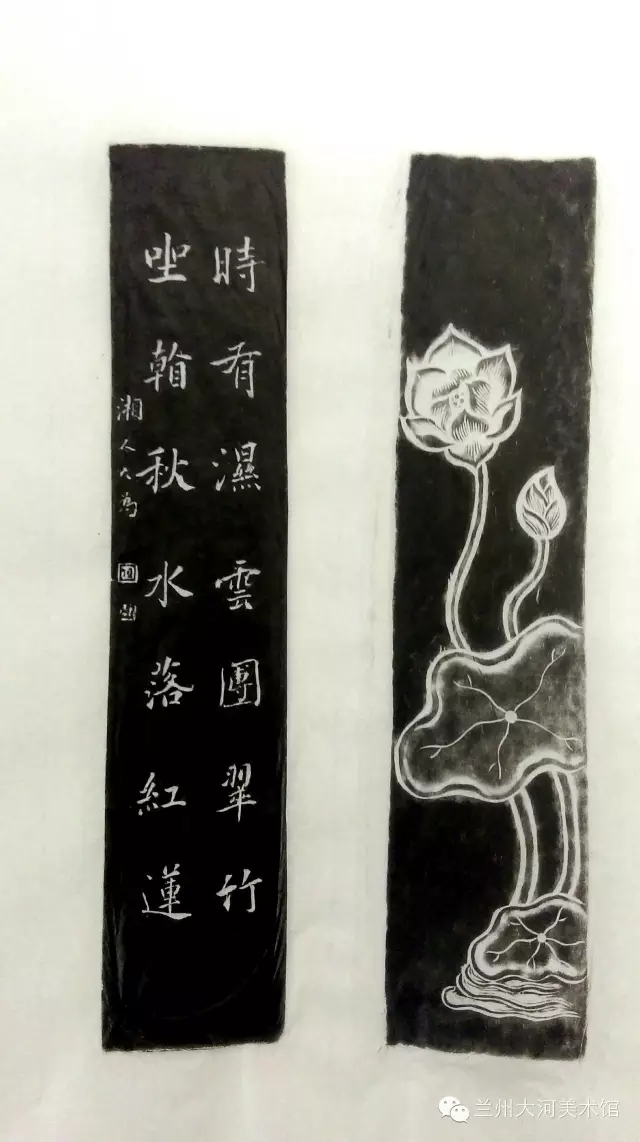 時有濕雲團翠竹
坐看秋水落紅蓮
湘人大為
兰州大河美术馆